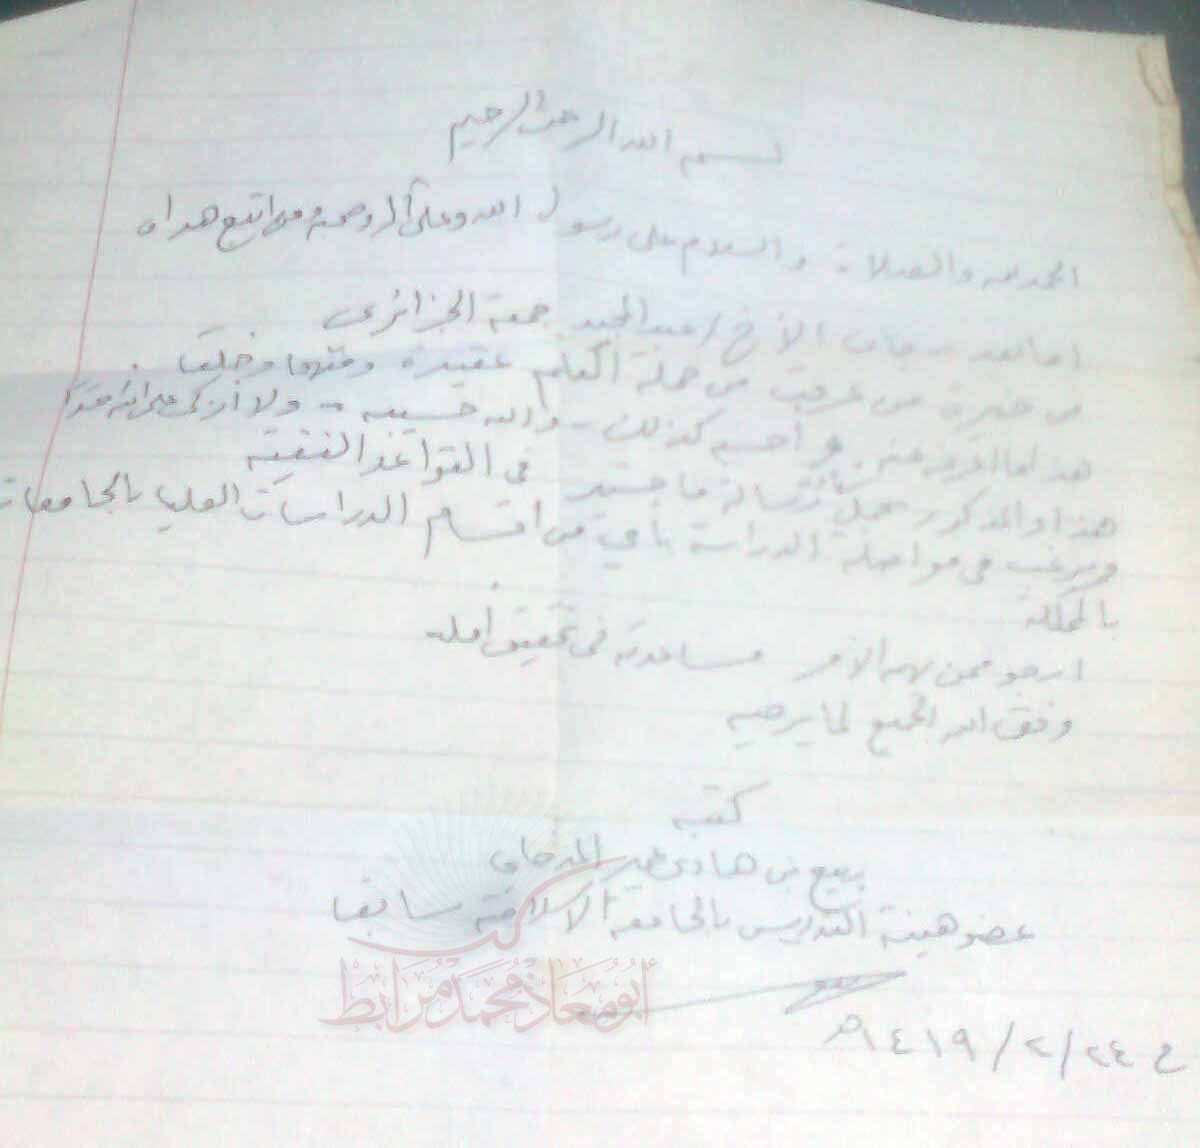 بسم الله الرحمن الرحيم
الحمد لله والصلاة والسلام على رسول الله وعلى آله وصحبه ومن اتبع هداه
اما بعد فان الأخ / عبد المجيد جمعة الجزائري
من خيرة من عرفت من حملة العلم عقيدة ومنهجا وخلقا .
هذا ما اعرفه عنه و احسبه كذلك - والله حسيبه - ولا أزكي على الله أحدًا
هذا والمذكور يحمل رسالة ماجستير في القواعد الفقهية
ويرغب في مواصلة الدراسة بأي من اقسام الدراسات العليا بالجامعات
بالمملكة
ارجو ممن يهمه الأمر مساعدته في تحقيق أمله
وفق الله الجميع لما يرضيه
كتبه
ربيع بن هادي عمير المدخلي
عضو هيئة التدريس بالجامعة الاسلامية سابقا
كتب
أبو معاذ محمد مرابط
ح ٢٤/٢/١٤١٩هـ